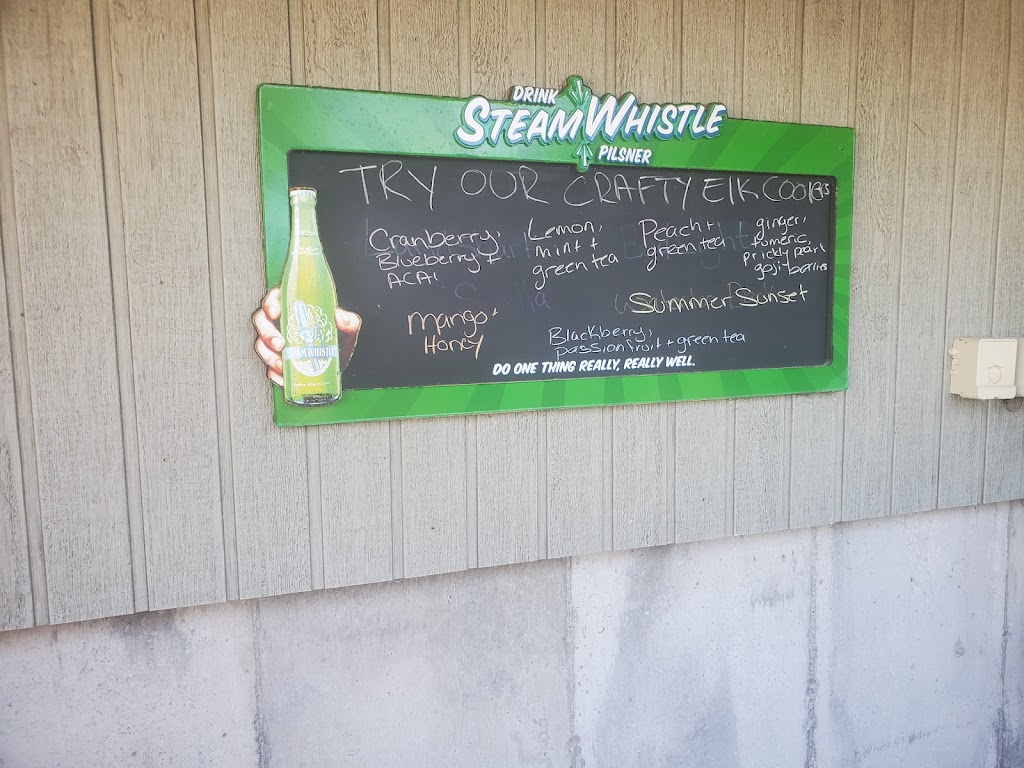 DRINK
STEAM WHISTLE
PILSNER
TRY OUR CRAFTY ElK COOlERS
Cranberry,
Blueberry +
ACAI
Lemon,
mint +
green tea
Peach +
green tea
ginger,
tumeric,
prickly pear +
goji-berries
Mango +
Honey
Summer Sunset
Blackberry,
passionfruit + green tea
DO ONE THING REALLY, REALLY WELL.
STEAM WHISTLE